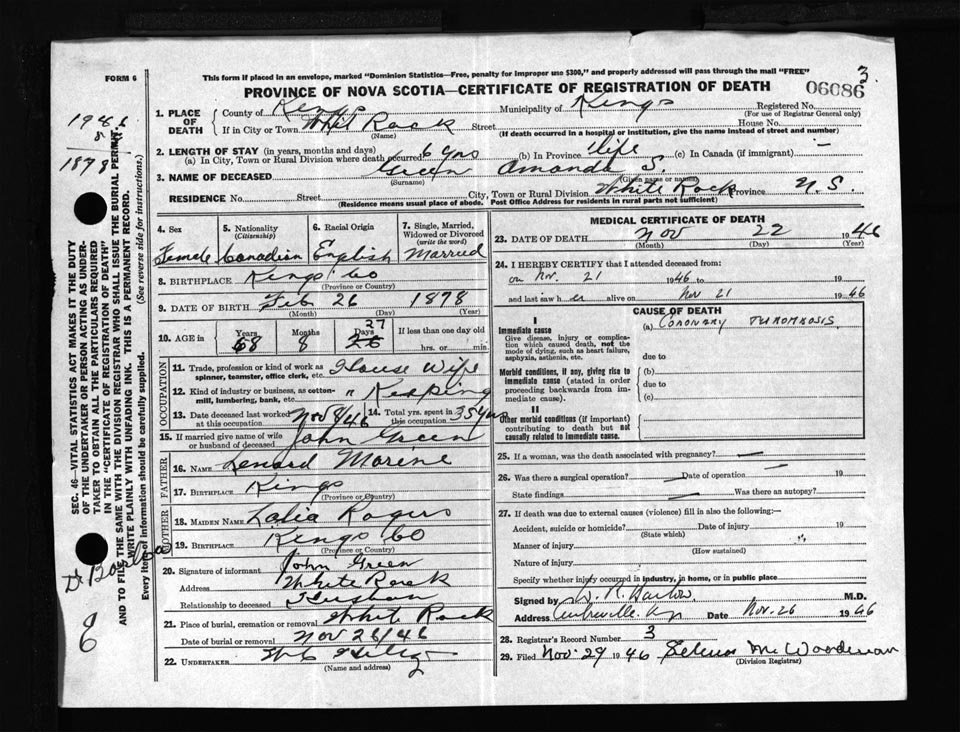 FORM 6
This form if placed in an envelope, marked "Dominion Statistics—Free, penalty for improper use $300," and properly addressed will pass through the mail "FREE"
3
PROVINCE OF NOVA SCOTIA—CERTIFICATE OF REGISTRATION OF DEATH
06086
1. PLACE OF DEATH
County of Kings Municipality of Kings Registered No.
(For use of Registrar General only)
If in City or Town White Rock Street House No.
(Name) (If death occurred in a hospital or institution, give the name instead of street and number)
2. LENGTH OF STAY (in years, months and days)
(a) In City, Town or Rural Division where death occurred 6 yrs (b) In Province life (c) In Canada (if immigrant) —
3. NAME OF DECEASED Green Amanda S.
(Surname) (Given name or names)
RESIDENCE No. Street City, Town or Rural Division White Rock Province N.S.
(Residence means usual place of abode. Post Office Address for residents in rural parts not sufficient)
4. Sex Female
5. Nationality (Citizenship) Canadian
6. Racial Origin English
7. Single, Married, Widowed or Divorced (write the word) Married
8. BIRTHPLACE Kings Co
(Province or Country)
9. DATE OF BIRTH Feb 26 1878
(Month) (Day) (Year)
10. AGE in Years 68 Months 8 Days 26 27 If less than one day old hrs. or min.
OCCUPATION
11. Trade, profession or kind of work as spinner, teamster, office clerk, etc. House Wife
12. Kind of industry or business, as cotton-mill, lumbering, bank, etc. " Keeping
13. Date deceased last worked at this occupation Nov /46 14. Total yrs. spent in this occupation 35 yrs
15. If married give name of wife or husband of deceased John Green
FATHER
16. NAME Lenard Morine
17. BIRTHPLACE Kings
(Province or Country)
MOTHER
18. MAIDEN NAME Rogers
19. BIRTHPLACE Kings Co
(Province or Country)
20. Signature of informant John Green
Address White Rock
Relationship to deceased Husban
21. Place of burial, cremation or removal White Rock
Date of burial or removal Nov 26/46
22. UNDERTAKER
(Name and address)
MEDICAL CERTIFICATE OF DEATH
23. DATE OF DEATH Nov 22 1946
(Month) (Day) (Year)
24. I HEREBY CERTIFY that I attended deceased from:
on Nov. 21 1946 to 19
and last saw h er alive on Nov 21 1946
CAUSE OF DEATH
I
Immediate cause
Give disease, injury or complication which caused death, not the mode of dying, such as heart failure, asphyxia, asthenia, etc.
(a) CORONARY THROMBOSIS
due to
Morbid conditions, if any, giving rise to immediate cause (stated in order proceeding backwards from immediate cause).
(b)
due to
(c)
II
Other morbid conditions (if important) contributing to death but not causally related to immediate cause.
25. If a woman, was the death associated with pregnancy? —
26. Was there a surgical operation? — Date of operation — 19
State findings — Was there an autopsy? —
27. If death was due to external causes (violence) fill in also the following:—
Accident, suicide or homicide? Date of injury 19
(State which)
Manner of injury "
(How sustained)
Nature of injury
Specify whether injury occurred in industry, in home, or in public place
Signed by M.D.
Address Date Nov. 26 1946
28. Registrar's Record Number 3
29. Filed Nov 29 1946 Woodman
(Division Registrar)
SEC. 46—VITAL STATISTICS ACT MAKES IT THE DUTY
OF THE UNDERTAKER OR PERSON ACTING AS UNDERTAKER TO OBTAIN ALL THE PARTICULARS REQUIRED
IN THE "CERTIFICATE OF REGISTRATION OF DEATH"
AND TO FILE THE SAME WITH THE DIVISION REGISTRAR WHO SHALL ISSUE THE BURIAL PERMIT.
WRITE PLAINLY WITH UNFADING INK. THIS IS A PERMANENT RECORD.
Every item of information should be carefully supplied. (See reverse side for instructions.)
1946
8
1878